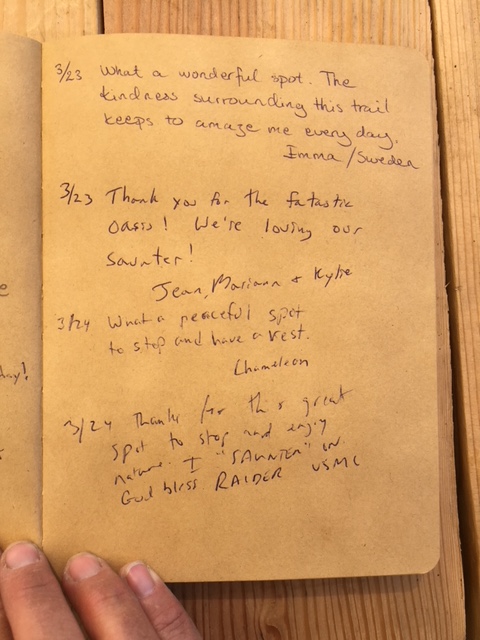 3/23 What a wonderful spot. The
kindness surrounding this trail
keeps to amaze me every day.
Imma /Sweden
3/23 Thank you for the fatastic
oasis! We're loving our
saunter!
Jean, Mariann + Kylie
3/24 What a peaceful spot
to stop and have a rest.
Chameleon
3/24 Thanks for this great
spot to stop and enjoy
nature. I "SAUNTER" IN.
God bless RAIDER USMC
e
day!